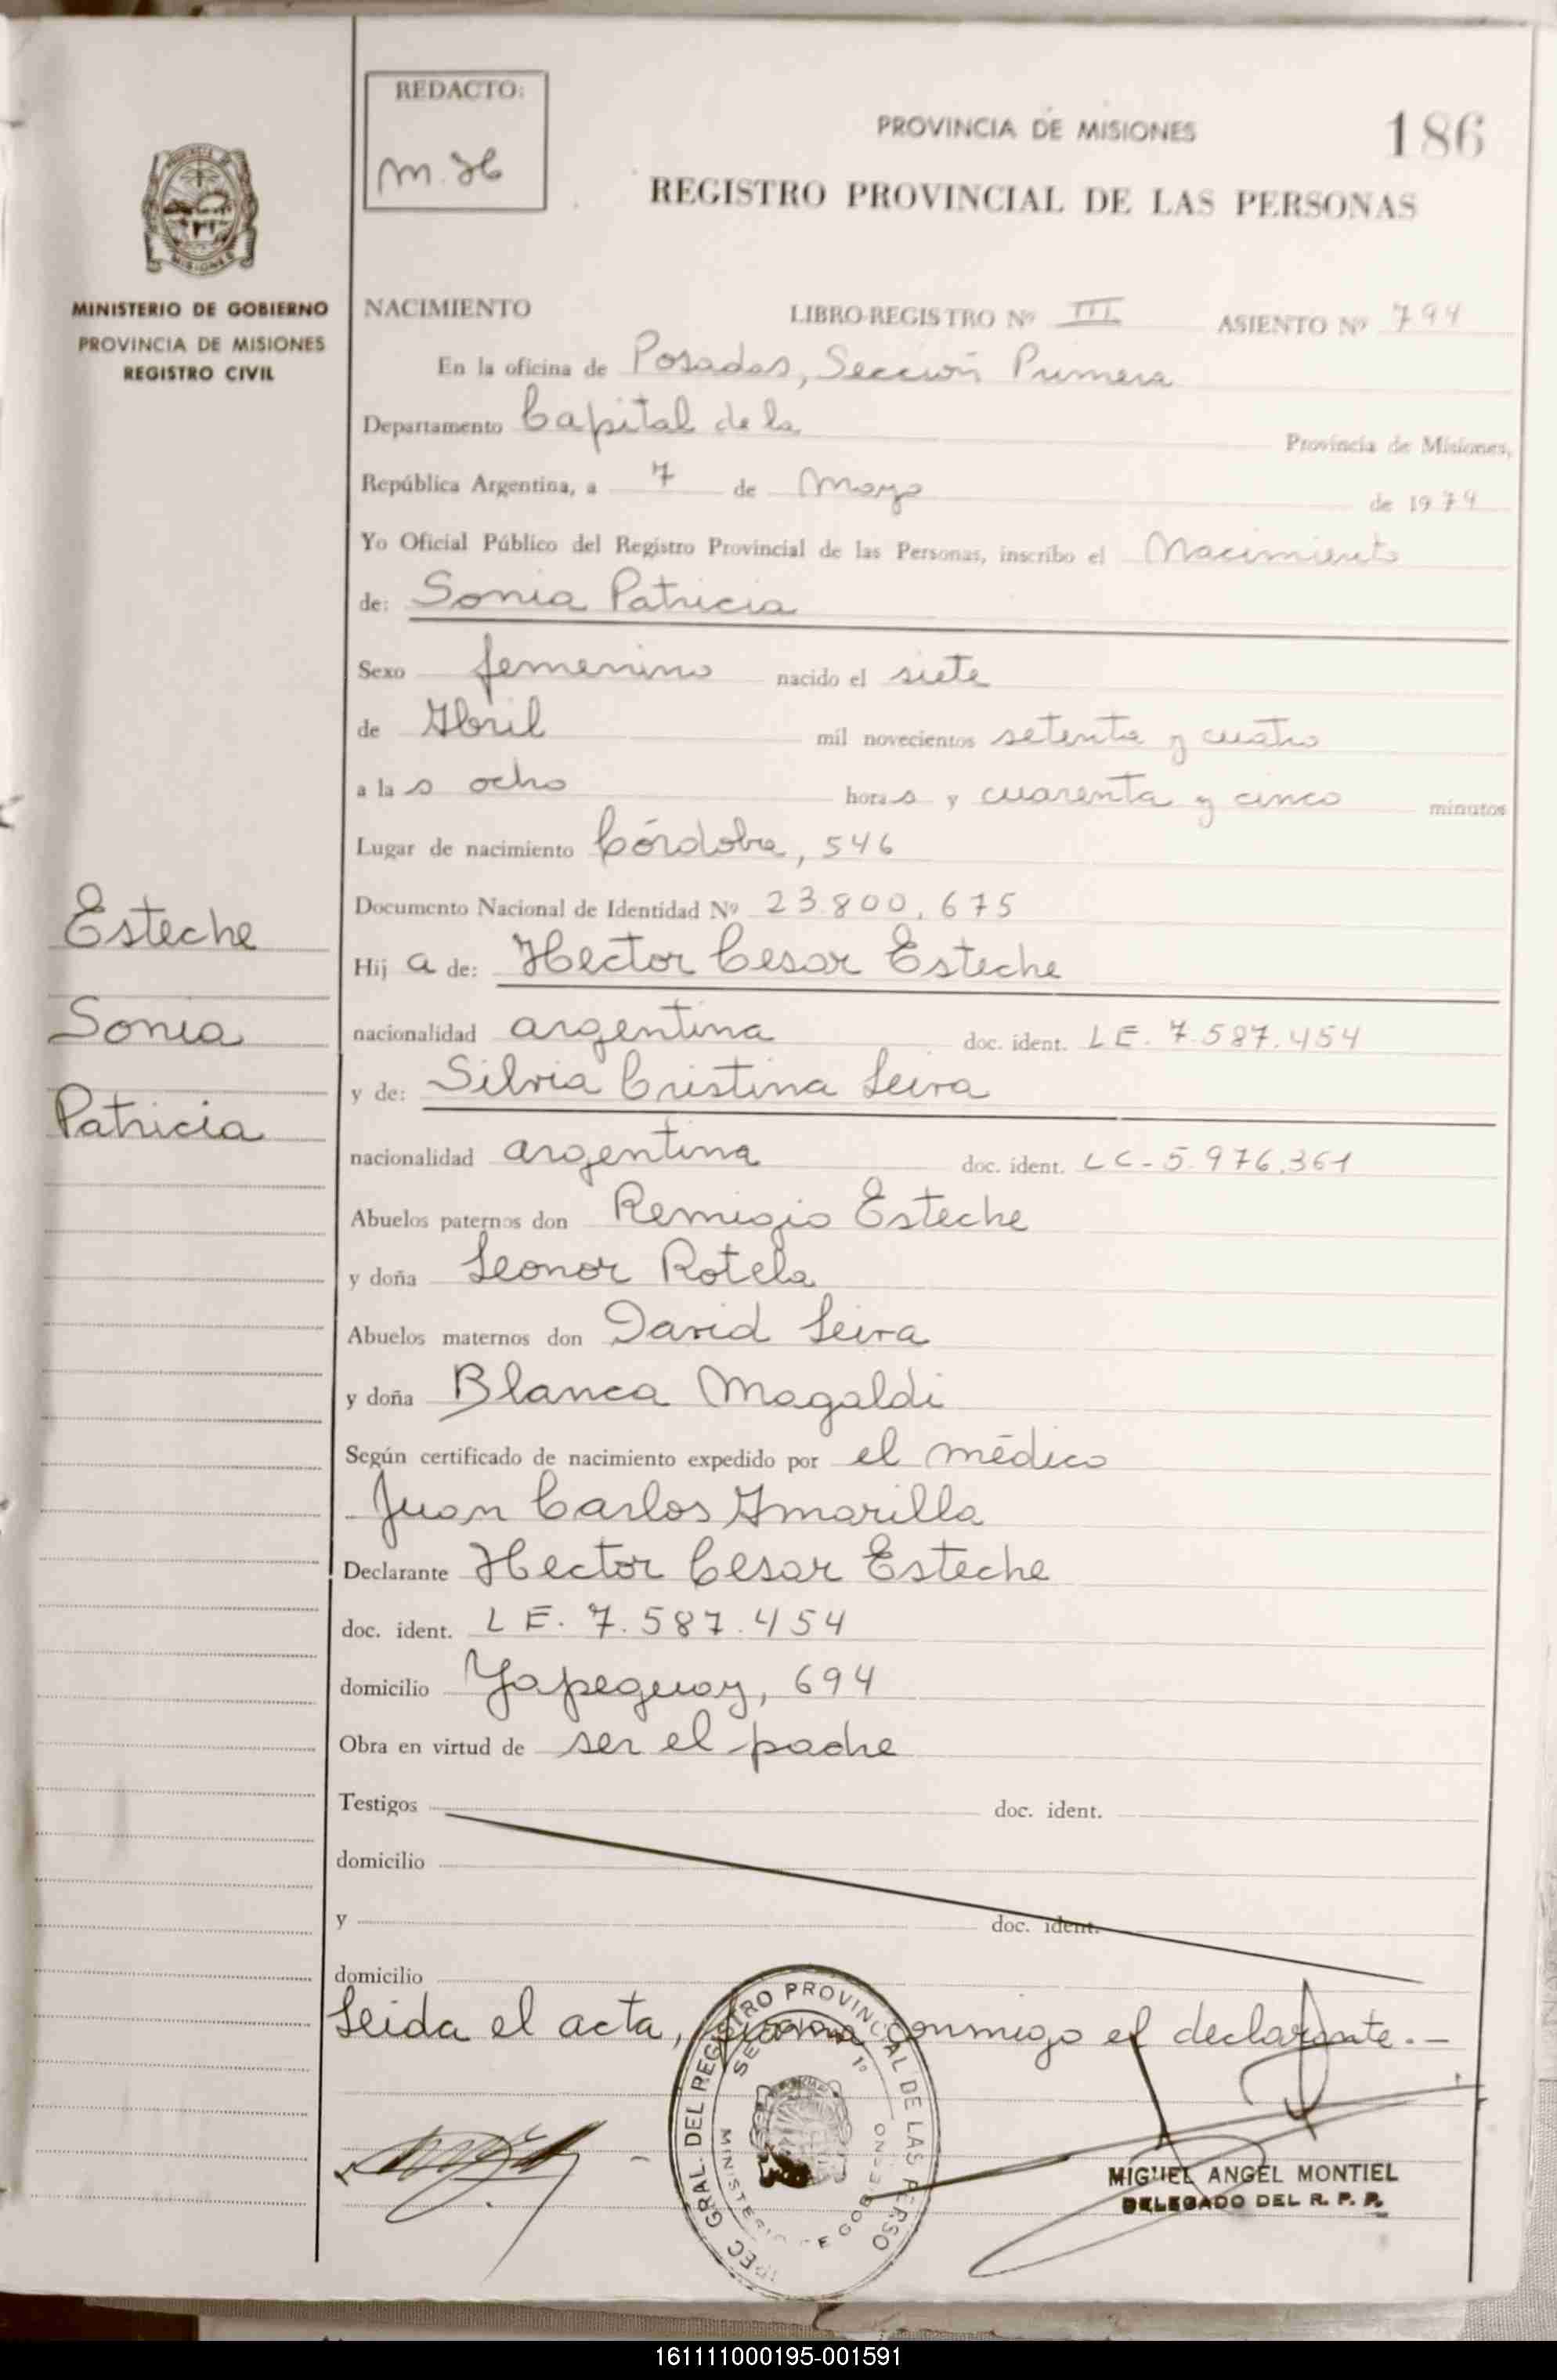 REDACTO:
M. H
PROVINCIA DE MISIONES
186
REGISTRO PROVINCIAL DE LAS PERSONAS
MINISTERIO DE GOBIERNO
PROVINCIA DE MISIONES
REGISTRO CIVIL
NACIMIENTO LIBRO-REGISTRO Nº III ASIENTO Nº 794
En la oficina de Posadas, Sección Primera
Departamento Capital de la Provincia de Misiones,
República Argentina, a 7 de Mayo de 1974
Yo Oficial Público del Registro Provincial de las Personas, inscribo el Nacimiento
de: Sonia Patricia
Sexo femenino nacido el siete
de Abril mil novecientos setenta y cuatro
a las ocho horas y cuarenta y cinco minutos
Lugar de nacimiento Córdoba, 546
Documento Nacional de Identidad Nº 23.800.675
Esteche
Hija de: Hector Cesar Esteche
Sonia
nacionalidad argentina doc. ident. L E. 7.587.454
y de: Silvia Cristina Leiva
Patricia
nacionalidad argentina doc. ident. L C - 5.976.361
Abuelos paternos don Remigio Esteche
y doña Leonor Rotela
Abuelos maternos don David Leiva
y doña Blanca Magaldi
Según certificado de nacimiento expedido por el médico
Juan Carlos Amarilla
Declarante Hector Cesar Esteche
doc. ident. L E. 7.587.454
domicilio Yapeguay, 694
Obra en virtud de ser el padre
Testigos doc. ident.
domicilio
y doc. ident.
domicilio
Leida el acta, firma conmigo el declarante.-
GRAL. DEL REGISTRO PROVINCIAL DE LAS PERSO
MINISTERIO DE GOBIERNO
MIGUEL ANGEL MONTIEL
DELEGADO DEL R. P. P.
161111000195-001591